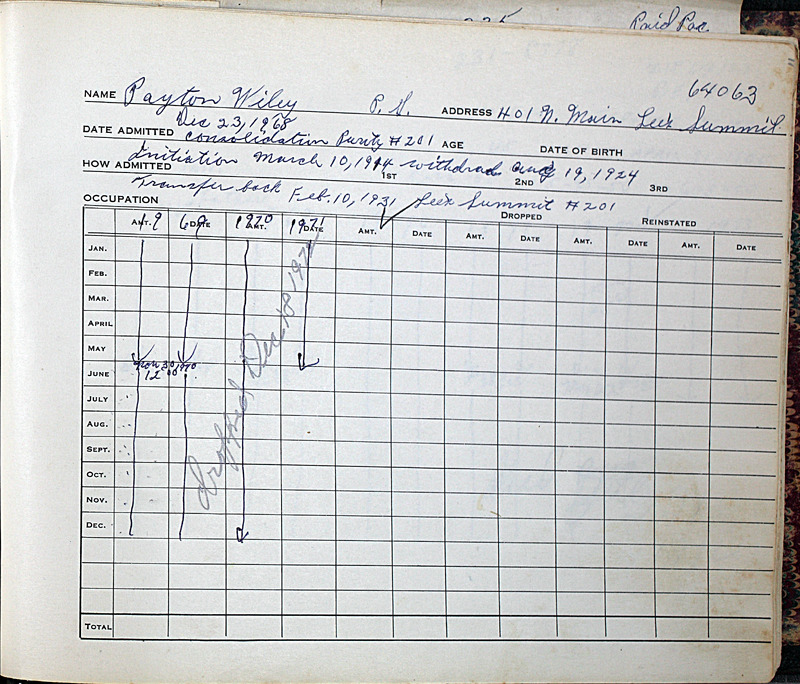 Paid Pac.
64063
NAME Payton Wiley P. S. ADDRESS 401 N. Main Lee's Summit
Dec 23, 1968
DATE ADMITTED consolidation Purity #201 AGE DATE OF BIRTH
Initiation March 10, 1914 withdrad. Aug 19, 1924
HOW ADMITTED 1ST 2ND 3RD
Transfer back Feb. 10, 1931 Lee's Summit #201
OCCUPATION DROPPED REINSTATED
AMT. DATE AMT. DATE AMT. DATE AMT. DATE AMT. DATE AMT. DATE
19 69 1970 1971
JAN.
FEB.
MAR.
APRIL
MAY
Nov 30 1970
JUNE 12 00
JULY
AUG.
SEPT.
OCT.
NOV.
DEC.
TOTAL
dropped, Dec. 18 1972